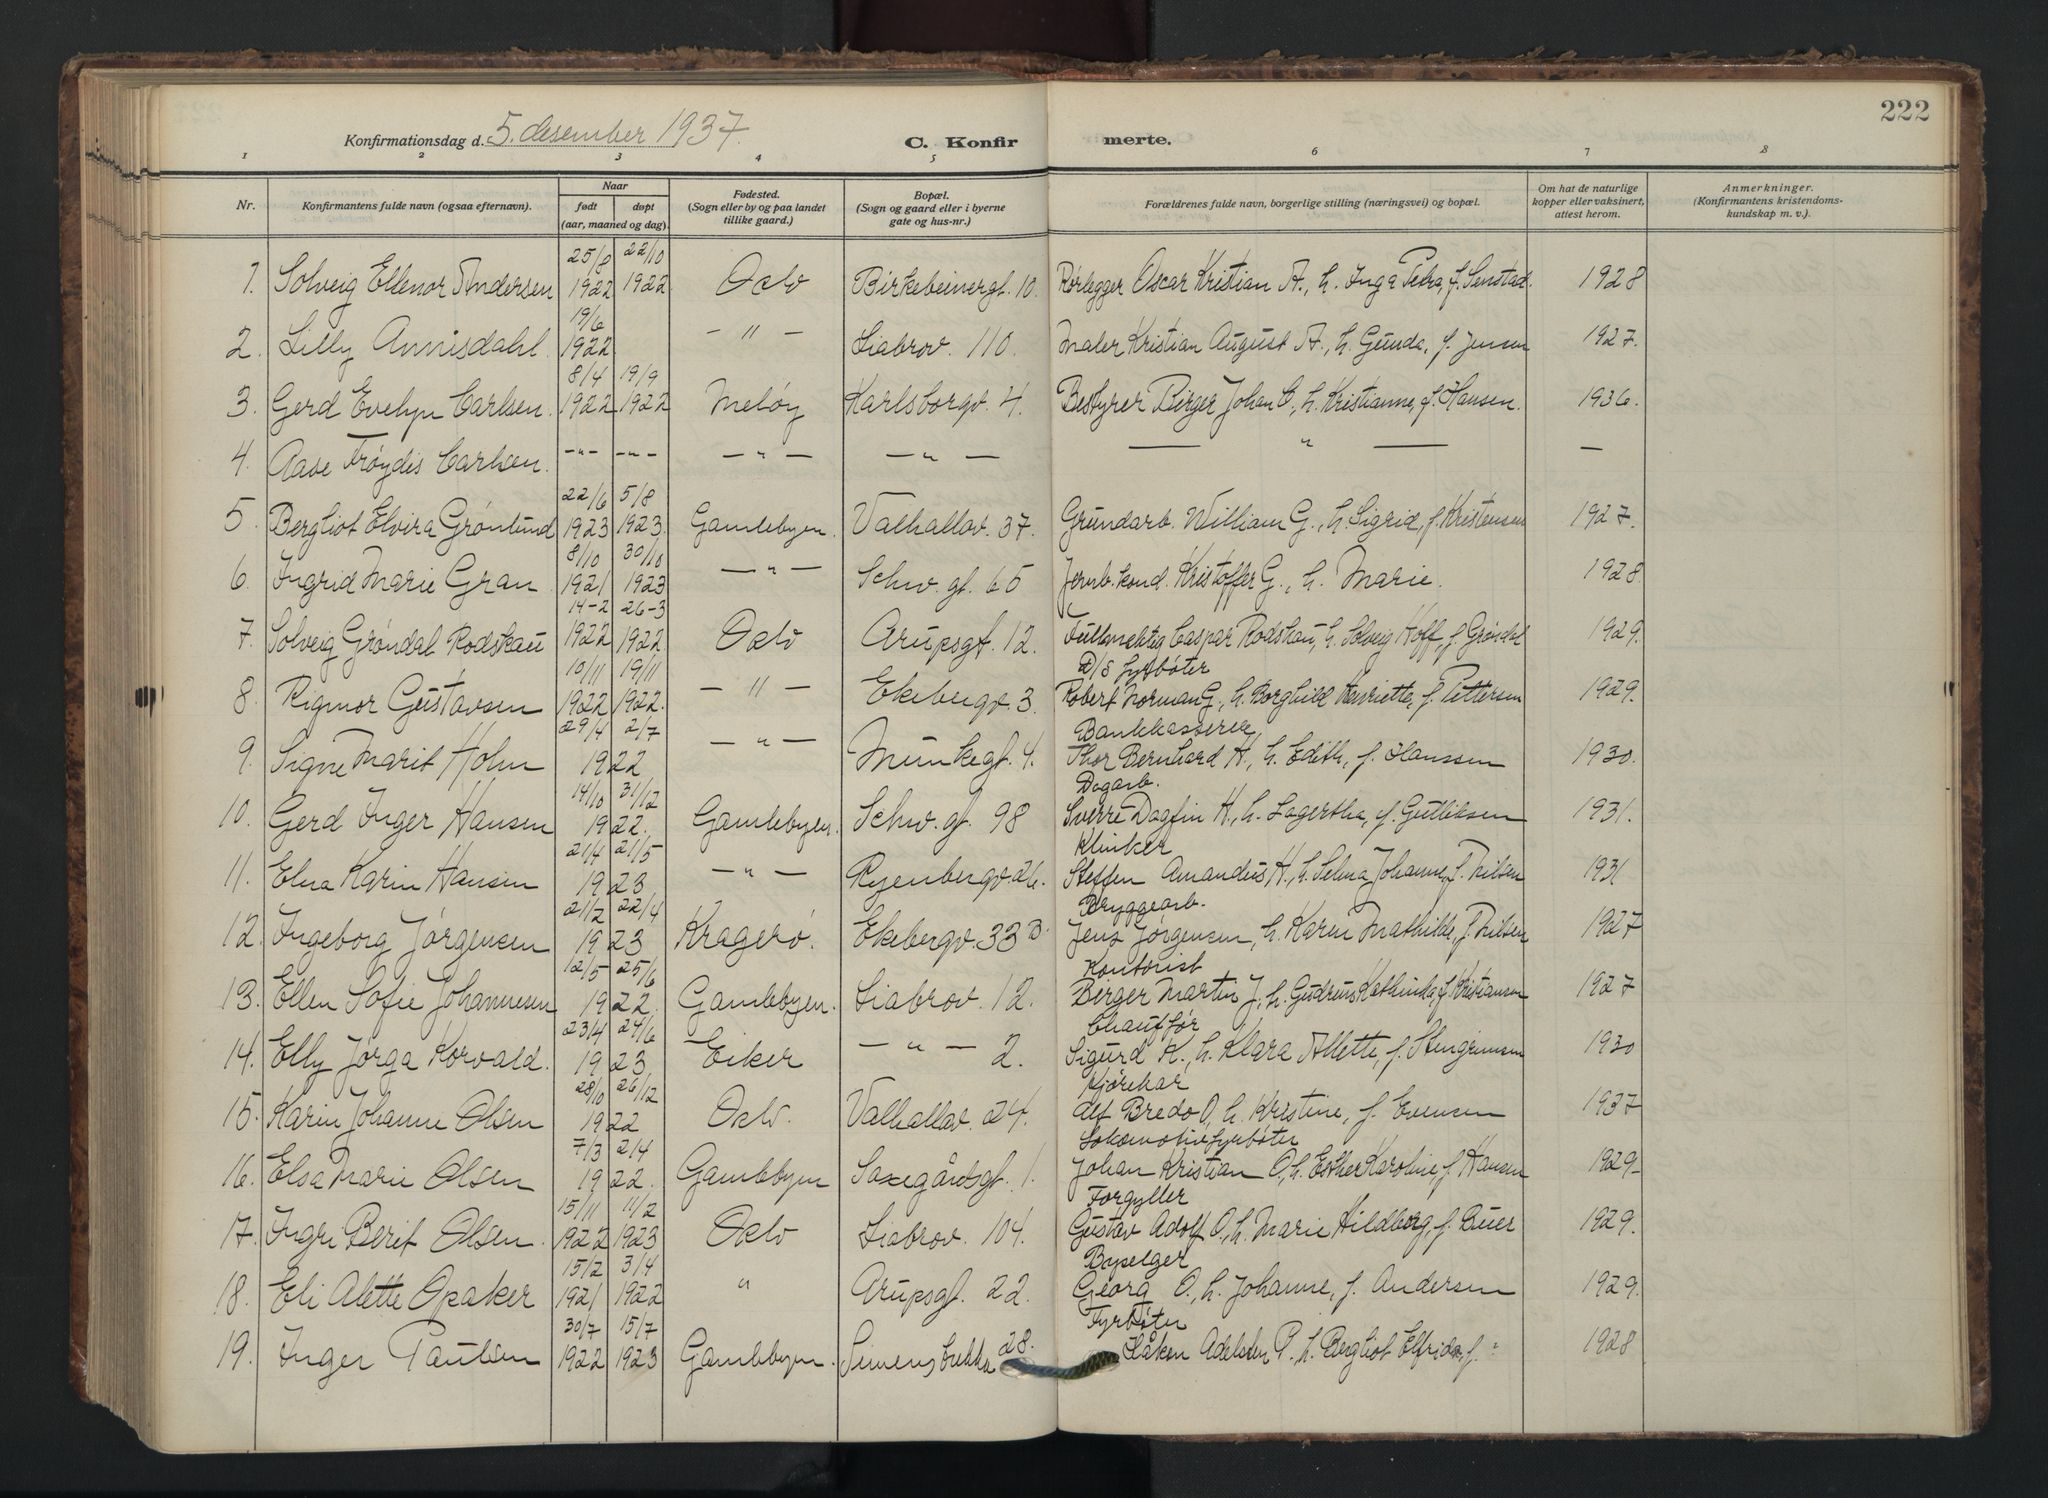 222
Konfirmationsdag d. 5. desember 1937.
C. Konfirmerte.
1 2 3 4 5 6 7 8
Nr.
Konfirmantens fulde navn (ogsaa efternavn).
Naar
født
døpt
(aar, maaned og dag).
Fødested.
(Sogn eller by og paa landet
tillike gaard.)
Bopæl.
(Sogn og gaard eller i byerne
gate og hus-nr.)
Forældrenes fulde navn, borgerlige stilling (næringsvei) og bopæl.
Om hat de naturlige
kopper eller vaksinert,
attest herom.
Anmerkninger.
(Konfirmantens kristendoms-
kundskap m. v.).
1. Solveig Ellenor Andersen 25/8 1922 22/10 1922 Oslo Birkebeinergt. 10. Rørlegger Oscar Kristian A., h. Inga Petra, f. Senstad. 1928
2. Lilly Annisdahl 19/6 1922 — " — Liabrov. 110. Maler Kristian August A., h. Gunda, f. Jensen 1927.
3. Gerd Evelyn Carlsen. 8/4 1922 19/9 1922 Meløy Karlsborgv. 4. Bestyrer Birger Johan C., h. Kristianne, f. Hansen. 1936.
4. Aase Frøydis Carlsen. -"- -"- — " — — " — — " — —
5. Bergliot Elvira Grønlund 22/6 1923 5/8 1923 Gamlebyen. Valhallav. 37. Grundarb. William G., h. Sigrid, f. Kristensen 1927.
6. Ingrid Marie Gran 8/10 1921 30/10 1923 — " — Schw. gt. 65 Jernb. kond. Kristoffer G., h. Marie. 1928.
7. Solveig Grøndal Rodskau 14-2 1922 26-3 1922 Oslo Arupsgt. 12. Fullmektig Caspar Rodshau, h. Solveig Hoff, f. Grøndal 1929.
8. Rigmor Gustavsen 10/11 1922 19/11 1922. — " — Ekebergv. 3. D/S fyrbøter Robert Norman G., h. Borghild Henriette, f. Pettersen 1929.
9. Signe Marit Holm 29/4 2/7 1922 — " — Munkegt. 4. Bankkasserer Thor Bernhard H., h. Edith, f. Hanssen 1930.
10. Gerd Inger Hansen 14/10 31/12 1922. Gamlebyen. Schw. gt. 98 Dagarb. Sverre Dagfin H., h. Lagertha, f. Gulliksen 1931.
11. Elna Karin Hansen 21/4 21/5 1923 — " — Ryenbergv. 26. Klinker Steffen Amandus H., h. Selma Johanne, f. Nilsen 1931
12. Ingeborg Jørgensen 21/2 22/4 1923 Kragerø. Ekebergv. 33 B. Bryggearb. Jens Jørgensen, h. Karen Mathilde, f. Nilsen 1927
13. Ellen Sofie Johannesen 12/5 25/6 1922. Gamlebyen. Liabrov. 12. Kontorist Birger Martin J., h. Gudrun Kathinka, f. Kristiansen 1927
14. Elly Jørga Korvald. 23/4 24/6 1923 Eiker — " — 2. Chauffør Sigurd K., h. Klara Alette, f. Stengrimsen 1930
15. Karin Johanne Olsen 28/10 26/12 1922 Oslo. Valhallav. 24. Kjørekar Alf Bredo O, h. Kristine, f. Evensen 1937
16. Elsa Marie Olsen 7/3 2/4 1922. Gamlebyen Saxegårdsgt. 1. Lokomotivfyrbøter Johan Kristian O., h. Esther Karoline, f. Hansen 1929-
17. Ingri Berit Olsen. 15/11 1922 11/2 1923 Oslo Liabrov. 104. Forgyller Gustav Adolf O., h. Marie Hildborg, f. Buer 1929.
18. Eli Alette Opaker 15/2 1921 3/4 1922 " Arupsgt. 22. Byselger Georg O., h. Johanne, f. Andersen 1929.
19. Inger Paulsen 30/7 1922 15/7 1923 Gamlebyen. Simensbrekka 28. Fyrbøter Håkon Adelsten P., h. Bergliot Elfrida, f. " 1928